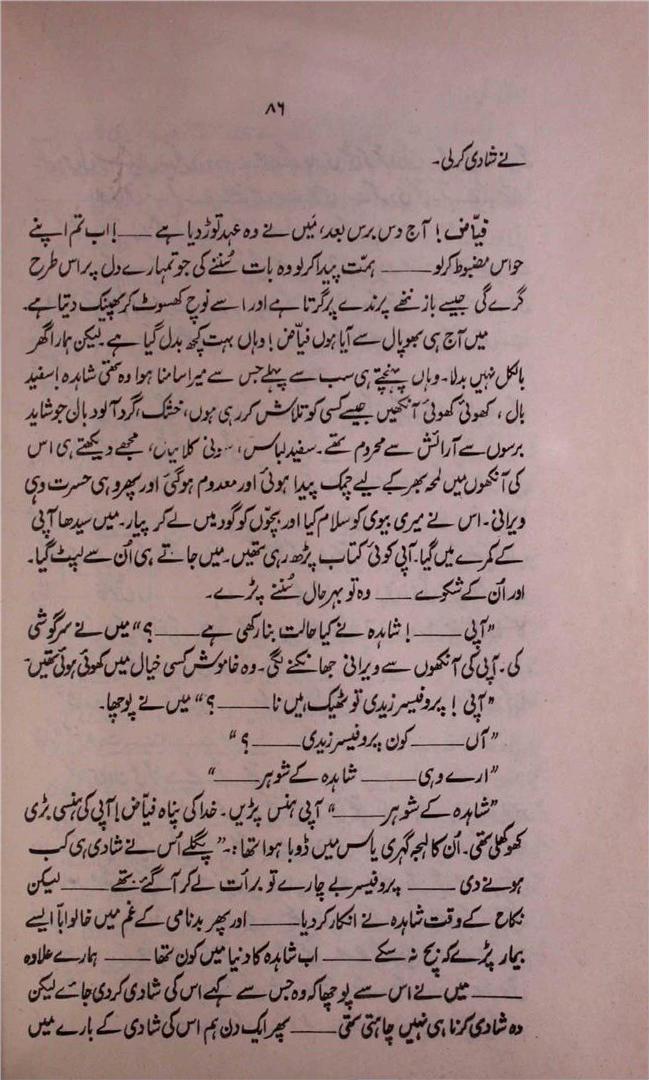 ۸۶
نے شادی کرلی۔
فیاض! آج دس برس بعد، میں نے وہ عہد توڑ دیا ہے ـــــ! اب تم اپنے
حواس مضبوط کرلو ـــــ ہمّت پیدا کرلو وہ بات سُننے کی جو تمہارے دل پر اس طرح
گرے گی جیسے باز ننھے پرندے پر گرتا ہے اور اسے نوچ کھسوٹ کر پھینک دیتا ہے۔
میں آج ہی بھوپال سے آیا ہوں فیاض! وہاں بہت کچھ بدل گیا ہے۔ لیکن ہمارا گھر
بالکل نہیں بدلا۔ وہاں پہنچتے ہی سب سے پہلے جس سے میرا سامنا ہوا وہ تھی شاہدہ! سفید
بال، کھوئی کھوئی آنکھیں جیسے کسی کو تلاش کر رہی ہوں، خشک، گرد آلود بال جو شاید
برسوں سے آرائش سے محروم تھے۔ سفید لباس، سونی کلائیاں، مجھے دیکھتے ہی اس
کی آنکھوں میں لمحہ بھر کے لیے چمک پیدا ہوئی اور معدوم ہوگئی اور پھر وہی حسرت وہی
ویرانی۔ اس نے میری بیوی کو سلام کیا اور بچّوں کو گود میں لے کر پیار۔ میں سیدھا آپی
کے کمرے میں گیا۔ آپی کوئی کتاب پڑھ رہی تھیں۔ میں جاتے ہی اُن سے لپٹ گیا۔
اور اُن کے شکوے ـــــ وہ تو بہرحال سُننے پڑے۔
”آپی ـــــ! شاہدہ نے کیا حالت بنا رکھی ہے ـــــ؟“ میں نے سرگوشی
کی۔ آپی کی آنکھوں سے ویرانی جھانکنے لگی۔ وہ خاموش کسی خیال میں کھوئی ہوئی تھیں۔
”آپی! پروفیسر زیدی تو ٹھیک ہیں نا ـــــ؟“ میں نے پوچھا۔
”آں ـــــ کون پروفیسر زیدی ـــــ؟“
”ارے وہی ـــــ شاہدہ کے شوہر ـــــ“
”شاہدہ کے شوہر ـــــ“ آپی ہنس پڑیں۔ خدا کی پناہ فیاض! آپی کی ہنسی بڑی
کھوکھلی تھی۔ اُن کا لہجہ گہری یاس میں ڈوبا ہوا تھا:۔ ”پگلے اُس نے شادی ہی کب
ہونے دی ـــــ پروفیسر بے چارے تو برأت لے کر آگئے تھے ـــــ لیکن
نکاح کے وقت شاہدہ نے انکار کردیا ـــــ اور پھر بدنامی کے غم میں خالو ابّا ایسے
بیمار پڑے کہ بچ نہ سکے ـــــ اب شاہدہ کا دنیا میں کون تھا ـــــ ہمارے علاوہ
ـــــ میں نے اس سے پوچھا کہ وہ جس سے کہے اس کی شادی کردی جائے لیکن
وہ شادی کرنا ہی نہیں چاہتی تھی ـــــ پھر ایک دن ہم اس کی شادی کے بارے میں